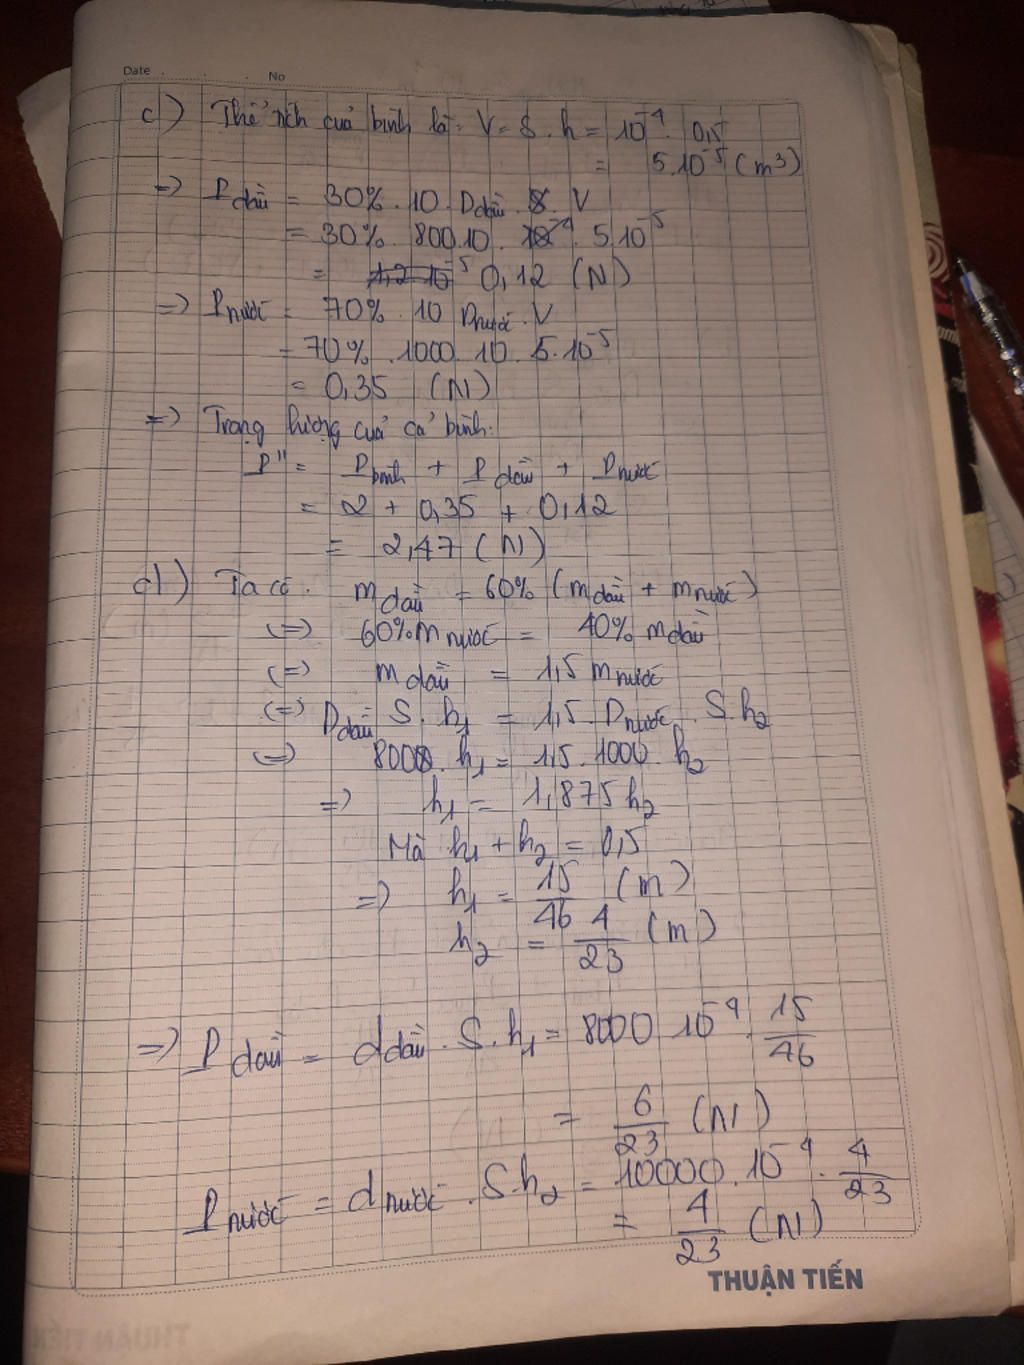 Date . . . No
c) Thể tích của bình là: V = S . h = 10⁻⁴ . 0,5
= 5.10⁻⁵ (m3)
=> Pdầu = 30% . 10 Ddầu . V
= 30% . 800.10 . 5.10⁻⁵
= 0,12 (N)
=> Pnước = 70% . 10 Dnước . V
= 70% . 1000 . 10 . 5.10⁻⁵
= 0,35 (N)
=> Trọng lượng của cả bình:
P" = Pbình + Pdầu + Pnước
= 2 + 0,35 + 0,12
= 2,47 (N)
d) Ta có. mdầu = 60% (mdầu + mnước)
(=) 60% mnước = 40% mdầu
(=) mdầu = 1,5 mnước
(=) Ddầu S . h1 = 1,5 . Dnước . S.h2
(=) 800 . h1 = 1,5 . 1000 . h2
=> h1 = 1,875 h2
Mà h1 + h2 = 0,5
=> h1 = 15/46 (m)
h2 = 4/23 (m)
=> Pdầu = ddầu . S . h1 = 8000 . 10⁻⁴ . 15/46
= 6/23 (N)
Pnước = dnước . S.h2 = 10000 . 10⁻⁴ . 4/23
= 4/23 (N)
THUẬN TIẾN